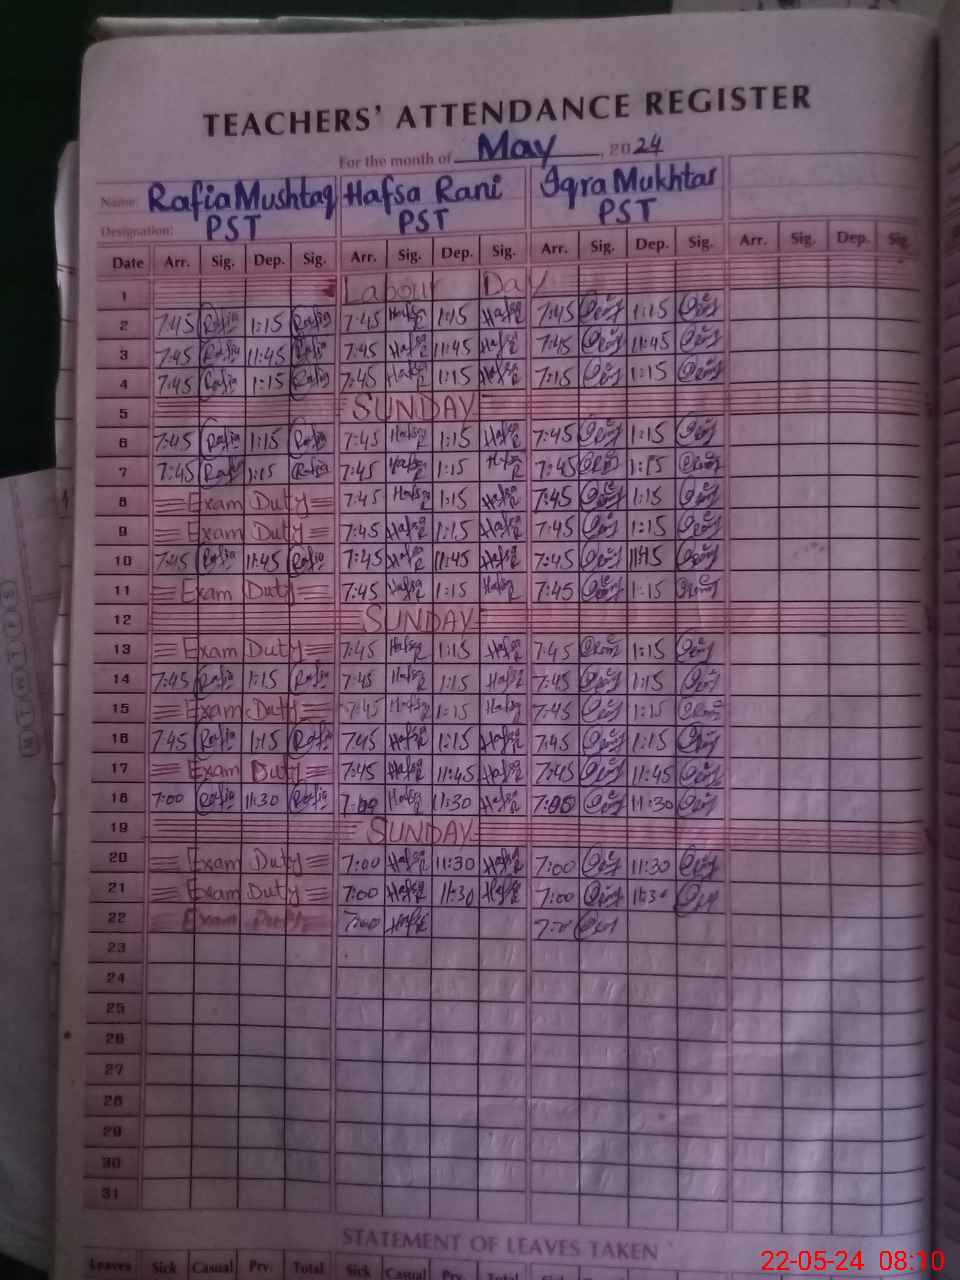 TEACHERS' ATTENDANCE REGISTER
For the month of May, 2024
Name: Rafia Mushtaq Hafsa Rani Iqra Mukhtar
Designation: PST PST PST
Date Arr. Sig. Dep. Sig. Arr. Sig. Dep. Sig. Arr. Sig. Dep. Sig. Arr. Sig. Dep. Sig.
1 Labour Day
2 7:45 Rafia 1:15 Rafia 7:45 Hafsa R 1:15 Hafsa R 7:45 1:15
3 7:45 Rafia 11:45 Rafia 7:45 Hafsa R 11:45 Hafsa R 7:45 11:45
4 7:45 Rafia 1:15 Rafia 7:45 Hafsa R 1:15 Hafsa R 7:15 1:15
5 SUNDAY
6 7:45 Rafia 1:15 Rafia 7:45 Hafsa R 1:15 Hafsa R 7:45 1:15
7 7:45 Rafia 1:15 Rafia 7:45 Hafsa R 1:15 Hafsa R 7:45 1:15
8 Exam Duty 7:45 Hafsa R 1:15 Hafsa R 7:45 1:15
9 Exam Duty 7:45 Hafsa R 1:15 Hafsa R 7:45 1:15
10 7:45 Rafia 11:45 Rafia 7:45 Hafsa R 11:45 Hafsa R 7:45
11 Exam Duty 7:45 Hafsa R 1:15 Hafsa R 7:45 1:15
12 SUNDAY
13 Exam Duty 7:45 Hafsa R 1:15 Hafsa R 7:45 1:15
14 7:45 Rafia 1:15 Rafia 7:45 Hafsa R 1:15 Hafsa R 7:45 1:15
15 Exam Duty 7:45 Hafsa R 1:15 Hafsa R 7:45 1:15
16 7:45 Rafia 1:15 Rafia 7:45 Hafsa R 1:15 Hafsa R 7:45 1:15
17 Exam Duty 7:45 Hafsa R 11:45 Hafsa R 7:45 11:45
18 7:00 Rafia 11:30 Rafia 7:00 Hafsa R 11:30 Hafsa R 7:00 11:30
19 SUNDAY
20 Exam Duty 7:00 Hafsa R 11:30 Hafsa R 7:00 11:30
21 Exam Duty 7:00 Hafsa R 11:30 Hafsa R 7:00 11:30
22 Exam Duty 7:00 Hafsa R
23
24
25
26
27
28
29
30
31
STATEMENT OF LEAVES TAKEN
Leaves Sick Casual Prv. Total Sick Casual Prv. Total Sick Casual
22-05-24 08:10